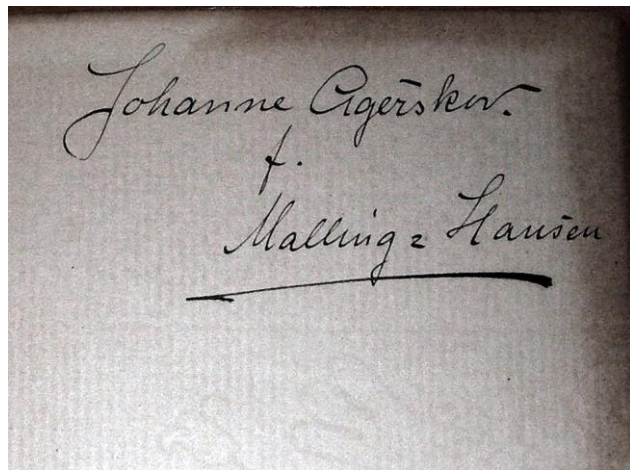 Johanne Agerskov.
f.
Malling = Hansen